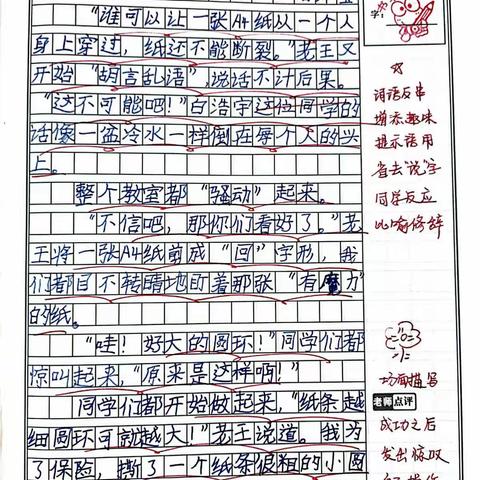 "谁可以让一张A4纸从一个人
身上穿过，纸还不能断裂。"老王又
开始"胡言乱语"，说话不计后果。
"这不可能吧！"白浩宇这位同学的
话像一盆冷水一样倒在每个人的头
上。
整个教室都"骚动"起来。
"不信吧，那你们看好了。"老
王将一张A4纸剪成"回"字形，我
们都目不转睛地盯着那张"有魔力"
的纸。
"哇！好大的圆环！"同学们都
惊叫起来，"原来是这样啊！"
同学们都开始做起来，"纸条越
细圆环可就越大！"老王说道。我为
了保险，撕了一个纸条很粗的小圆
字：
词语反串
增添趣味
提示语用
省去"说"字
同学反应
比喻修辞
场面描写
老师点评
成功之后
发出惊叹